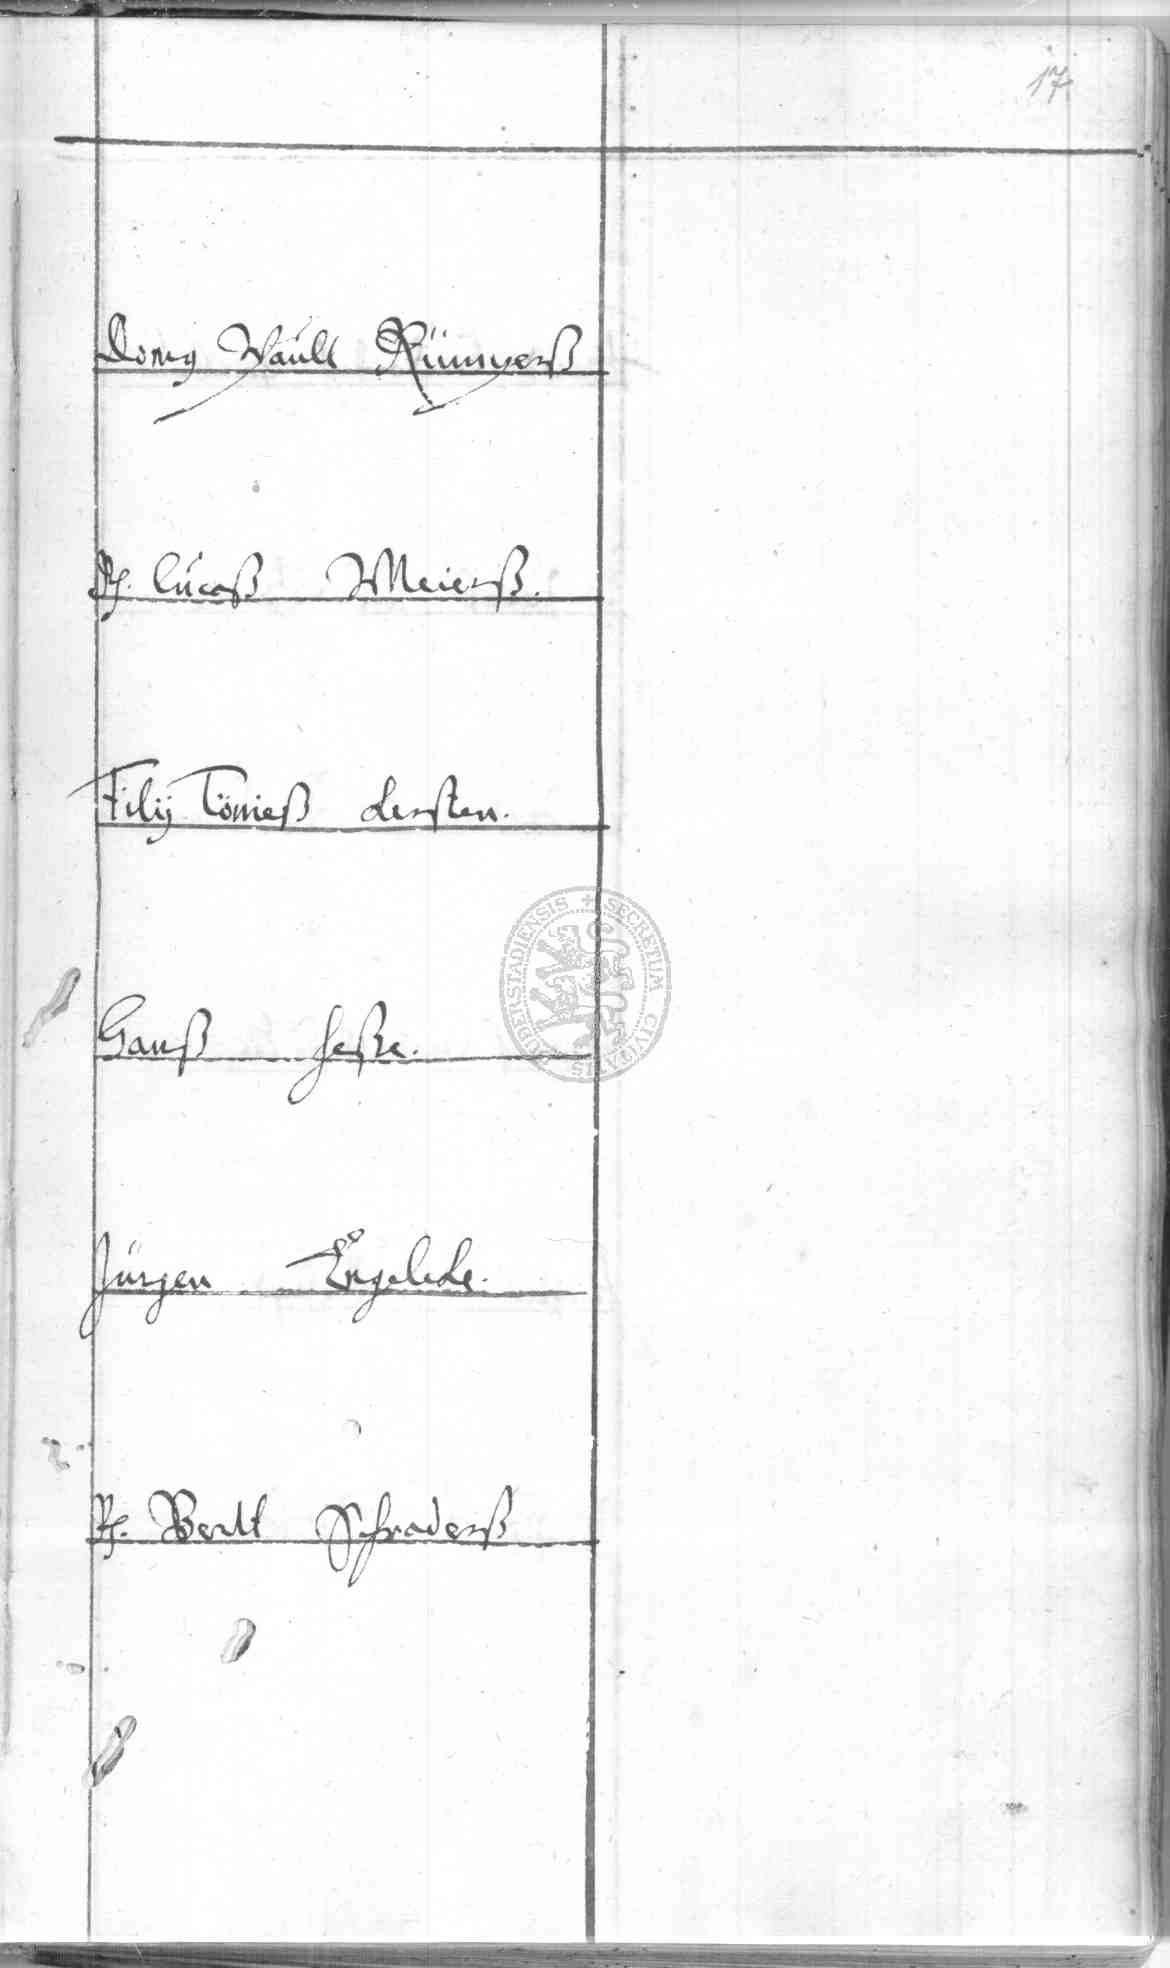 17
Domus Pauli Rümmyerß
R. Lucaß Meierß.
Filij Tönieß Kersten.
Hanß Heße.
Jürgen Engelcke.
R. Bertt Schraderß
SECRETUM CIVITATIS DUDERSTADIENSIS